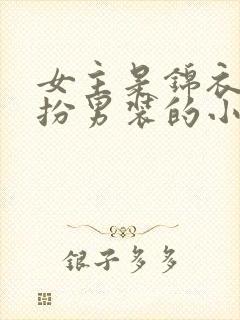 女主是锦衣
扮男装的小
银子多多